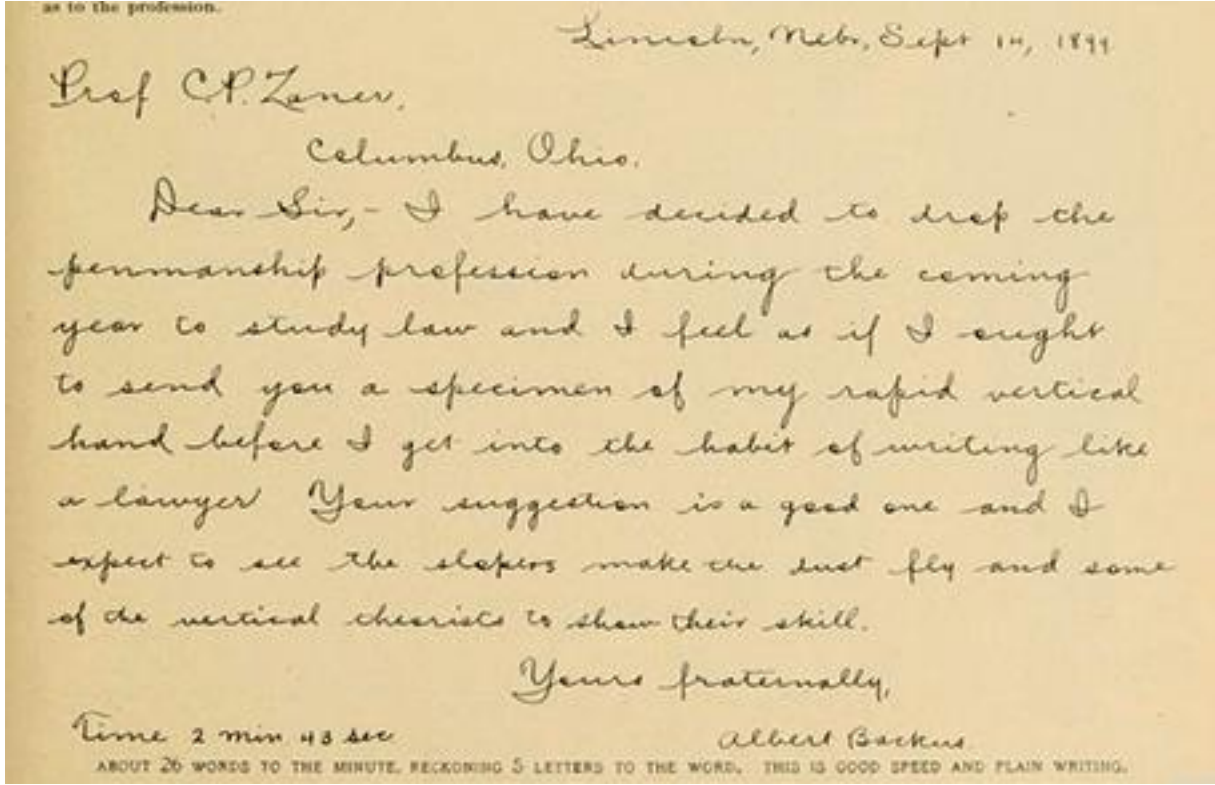 as to the profession.
Lincoln, Nebr, Sept 14, 1899
Prof C.P. Zaner,
Columbus, Ohio.
Dear Sir,- I have decided to drop the
penmanship profession during the coming
year to study law and I feel as if I ought
to send you a specimen of my rapid vertical
hand before I get into the habit of writing like
a lawyer Your suggestion is a good one and I
expect to see the slopers make the dust fly and some
of the vertical theorists to show their skill.
Yours fraternally,
Time 2 min 43 sec
Albert Backus
ABOUT 26 WORDS TO THE MINUTE, RECKONING 5 LETTERS TO THE WORD. THIS IS GOOD SPEED AND PLAIN WRITING.